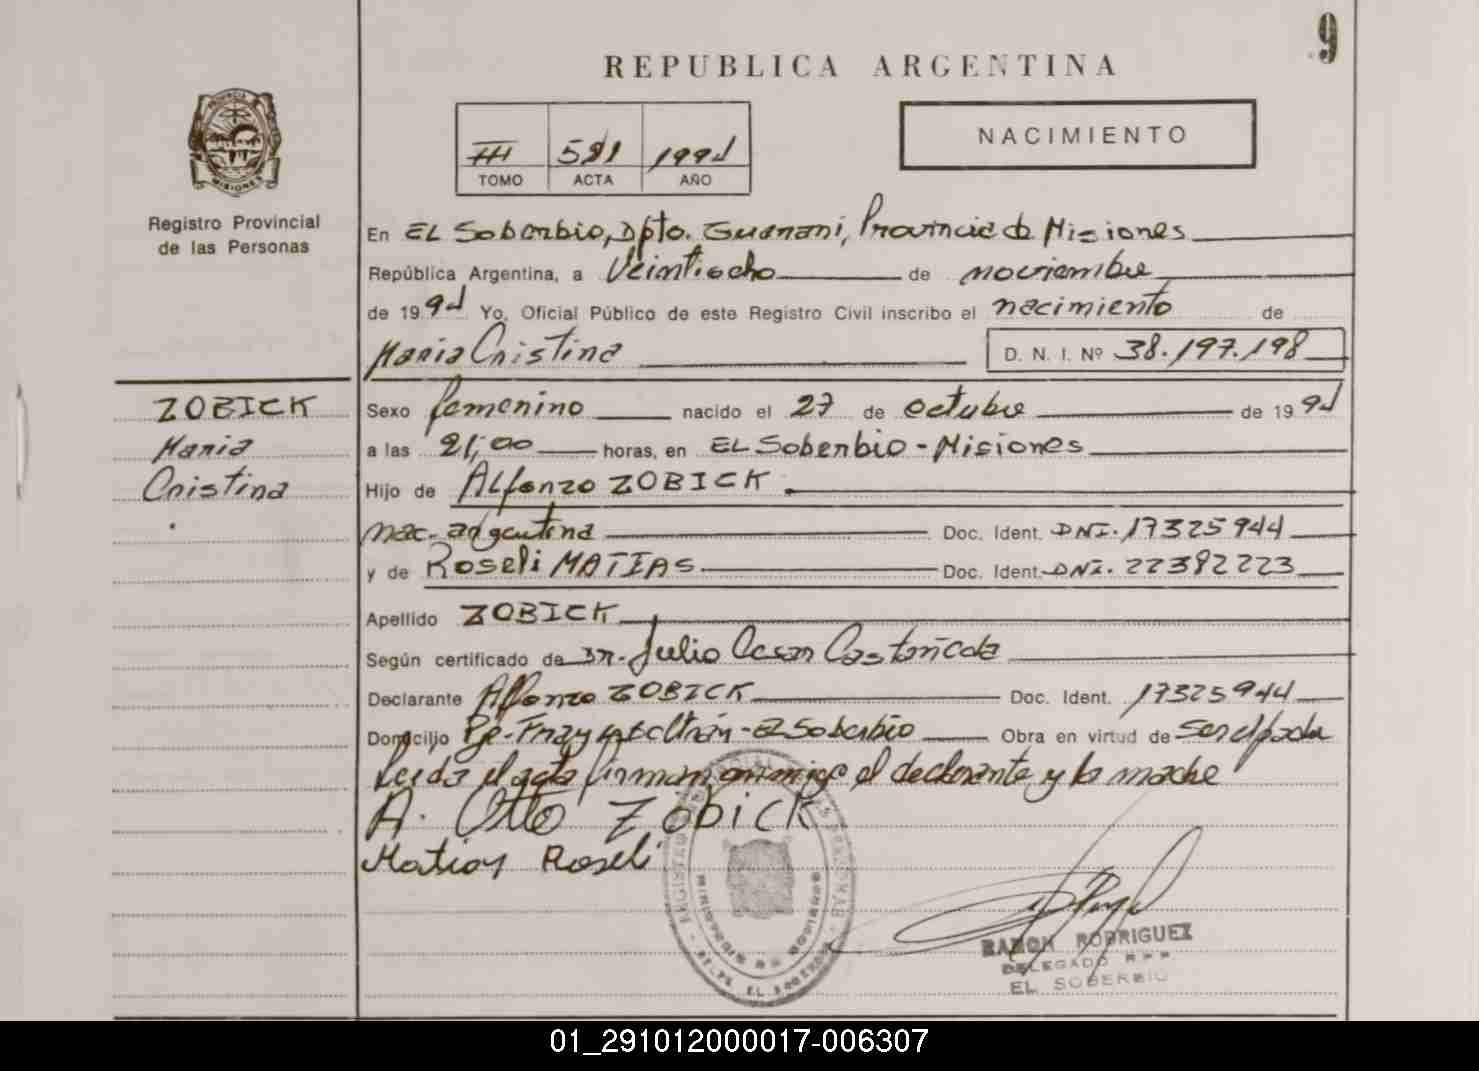 9
REPUBLICA ARGENTINA
NACIMIENTO
III 521 1994
TOMO ACTA AÑO
PROVINCIA DE MISIONES
Registro Provincial
de las Personas
En EL Soberbio, Dpto. Guarani, Provincia de Misiones
República Argentina, a Veintiocho de noviembre
de 1994 Yo, Oficial Público de este Registro Civil inscribo el nacimiento de
Maria Cristina D. N. I. Nº 38.197.198
ZOBICK
Maria
Cristina
Sexo femenino nacido el 27 de octubre de 1994
a las 21,00 horas, en EL Soberbio - Misiones
Hijo de Alfonzo ZOBICK
nac. argentina Doc. Ident. DNI. 17325944
y de Roseli MATIAS Doc. Ident. DNI. 22382223
Apellido ZOBICK
Según certificado de Dr. Julio Cesar Castañeda
Declarante Alfonzo ZOBICK Doc. Ident. 17325944
Domicilio Pje. Fray Beltrán - El Soberbio Obra en virtud de ser el padre
Leida el acta firman conmigo el declarante y la madre
A. Otto Zobick
Matias Roseli
RAMON RODRIGUEZ
DELEGADO R P P
EL SOBERBIO
01_291012000017-006307